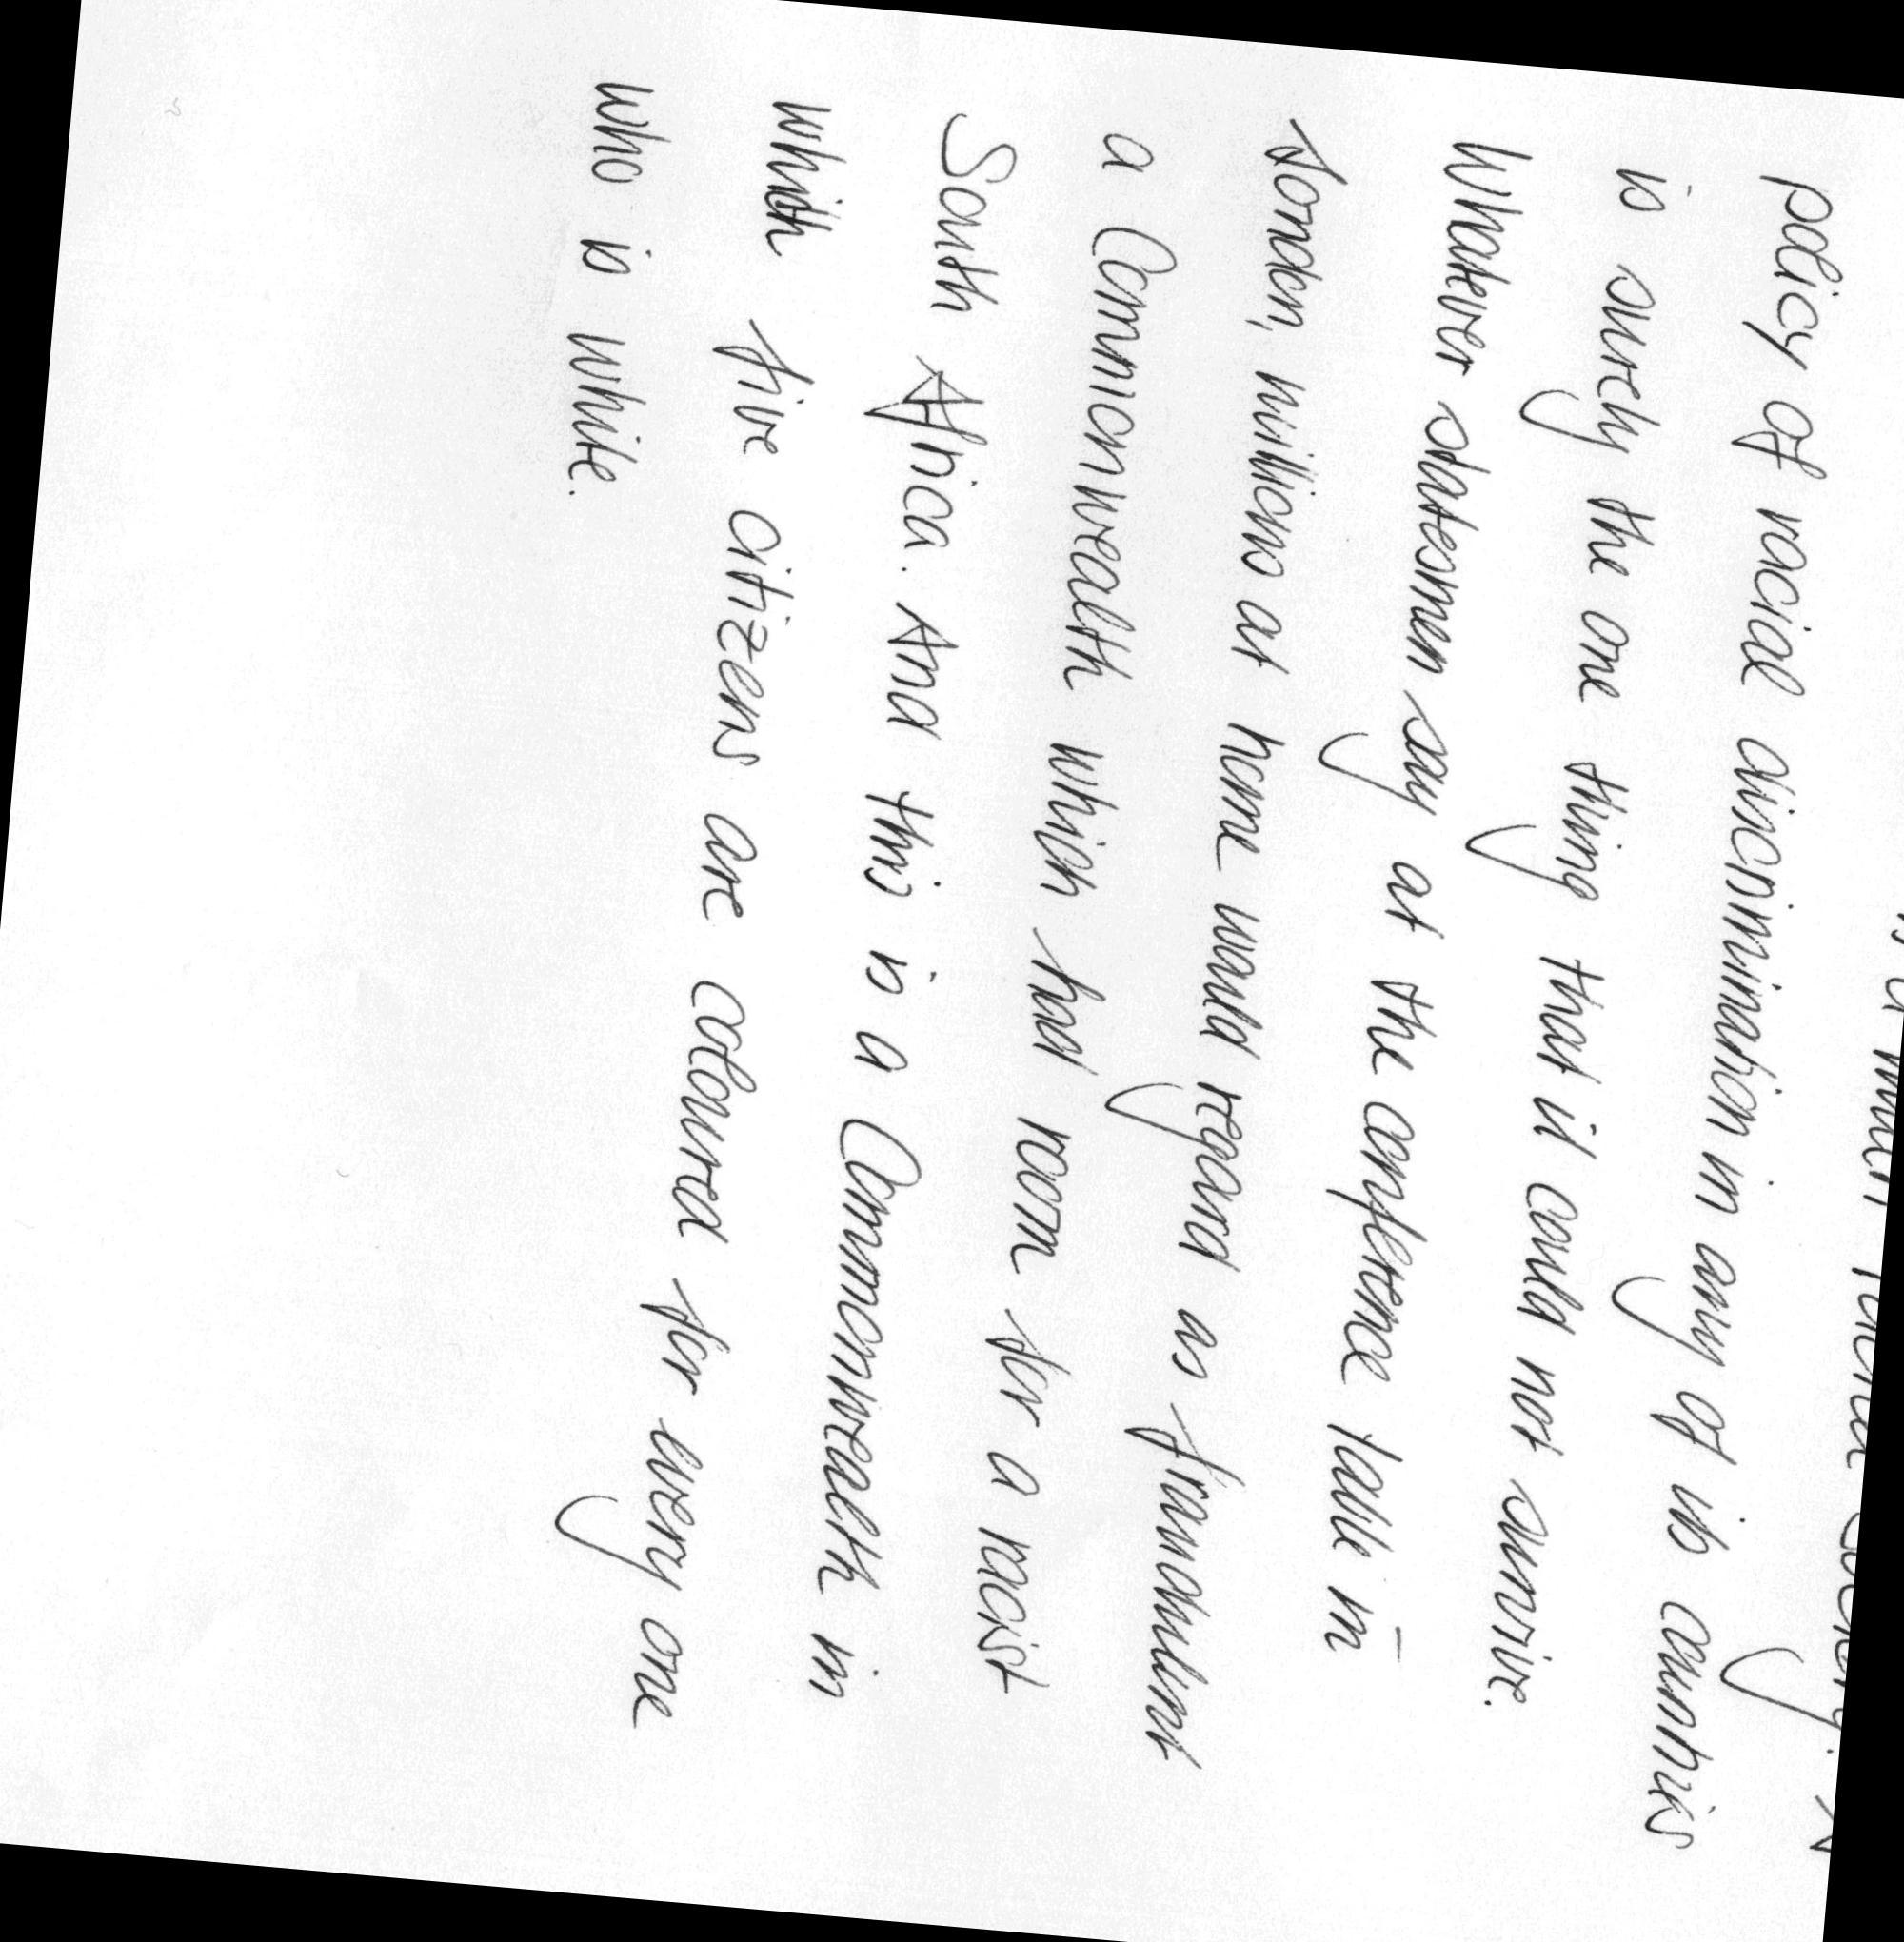 policy of racial discrimination in any of its countries
is surely the one thing that it could not survive.
Whatever statesmen say at the conference table in
London, millions at home would regard as fraudulent
a Commonwealth which had room for a racist
South Africa. And this is a Commonwealth in
which five citizens are coloured for every one
who is white.